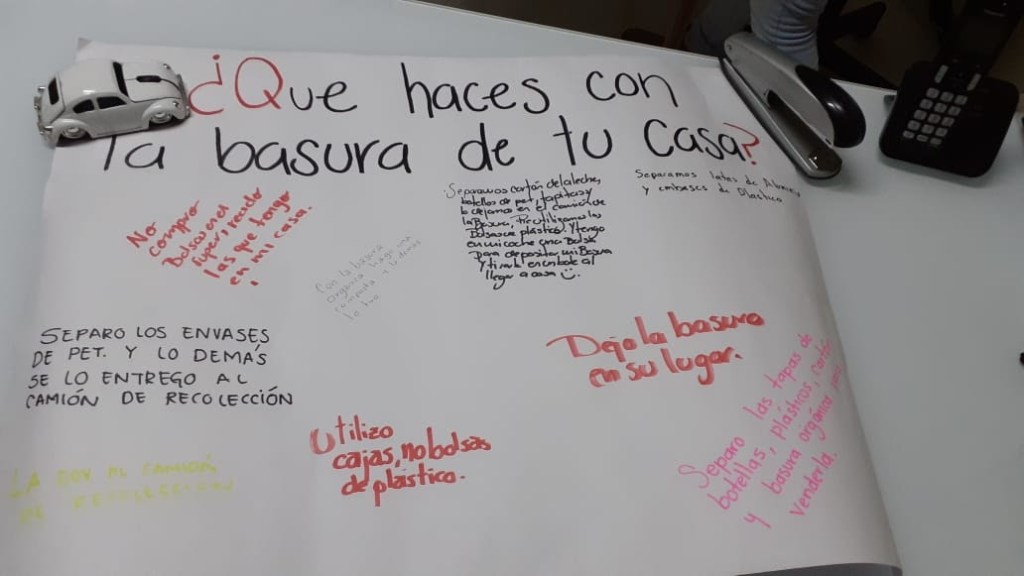 ¿Que haces con
la basura de tu Casa?
No
compro
Bolsas en el
super, reciclo
las que tengo
en mi casa.
Con la basura
orgánica hago una
composta
Separamos cartón de la leche,
botellas de pet, tapitas y
lo dejamos en el camión de
la Basura, Reutilizamos las
Bolsas de plástico. Y tengo
en mi coche una Bolsa
para depositar mi Basura
y tirarla en un bote al
llegar a casa
Separamos latas de Alumin
y embases de Plástico
SEPARO LOS ENVASES
DE PET. Y LO DEMÁS
SE LO ENTREGO AL
CAMIÓN DE RECOLECCIÓN
Dejo la basura
en su lugar.
LA DOY AL CAMIÓN
DE RECOLECCION
Utilizo
cajas, no bolsas
de plástico.
Separo las tapas de
botellas, plásticos, cartón
y basura orgánica para
venderla.